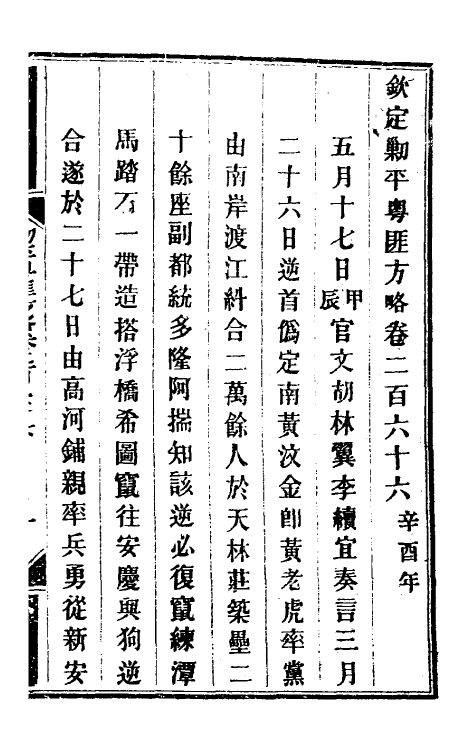 欽定剿平粵匪方略卷二百六十六辛酉年
五月十七日甲辰官文胡林翼李續宜奏言三月
二十六日逆首僞定南黃汶金卽黃老虎率黨
由南岸渡江糾合二萬餘人於天林莊築壘二
十餘座副都統多隆阿揣知該逆必復竄練潭
馬踏石一帶造搭浮橋希圖竄往安慶與狗逆
合遂於二十七日由高河鋪親率兵勇從新安